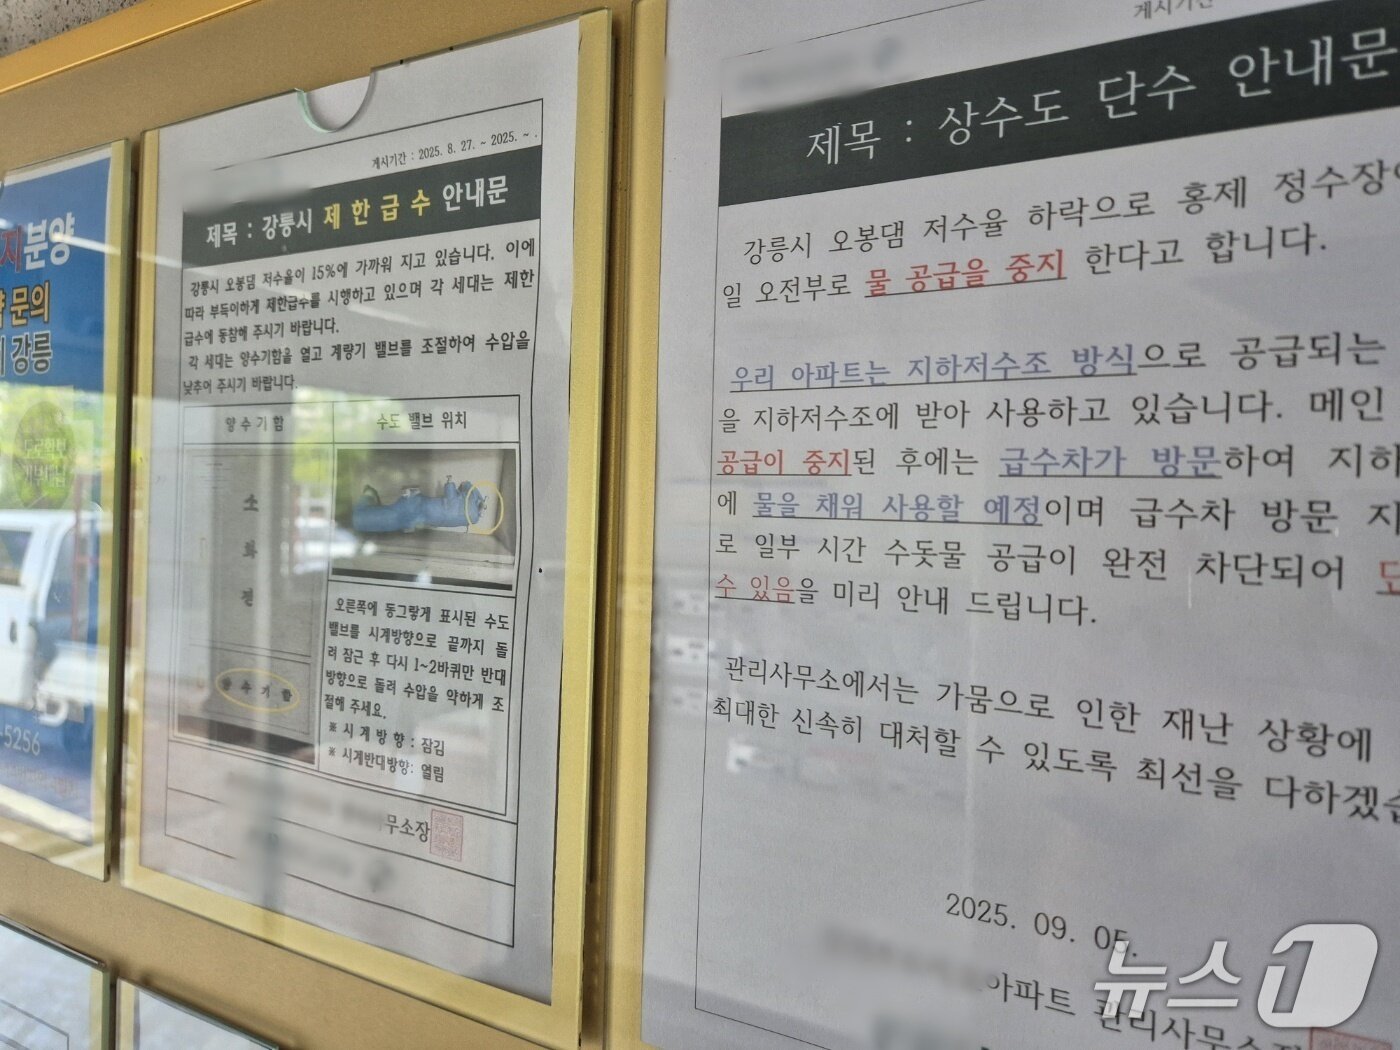 지분양
문의
강릉
-5256
게시기간 : 2025. 8. 27. ~ 2025. ~ .
제목 : 강릉시 제 한 급 수 안내문
강릉시 오봉댐 저수율이 15%에 가까워 지고 있습니다. 이에
따라 부득이하게 제한급수를 시행하고 있으며 각 세대는 제한
급수에 동참해 주시기 바랍니다.
각 세대는 양수기함을 열고 계량기 밸브를 조절하여 수압을
낮추어 주시기 바랍니다.
양 수 기 함
수도 밸브 위치
소
화
전
양 수 기 함
오른쪽에 동그랗게 표시된 수도
밸브를 시계방향으로 끝까지 돌
려 잠근 후 다시 1~2바퀴만 반대
방향으로 돌려 수압을 약하게 조
절해 주세요.
※ 시 계 방 향 : 잠김
※ 시계반대방향: 열림
무소장
게시기간
제목 : 상수도 단수 안내문
강릉시 오봉댐 저수율 하락으로 홍제 정수장
일 오전부로 물 공급을 중지 한다고 합니다.
우리 아파트는 지하저수조 방식으로 공급되는
을 지하저수조에 받아 사용하고 있습니다. 메인
공급이 중지된 후에는 급수차가 방문하여 지하
에 물을 채워 사용할 예정이며 급수차 방문 지
로 일부 시간 수돗물 공급이 완전 차단되어
수 있음을 미리 안내 드립니다.
관리사무소에서는 가뭄으로 인한 재난 상황에
최대한 신속히 대처할 수 있도록 최선을 다하겠습
2025. 09. 05.
아파트 관리사무소
뉴스1